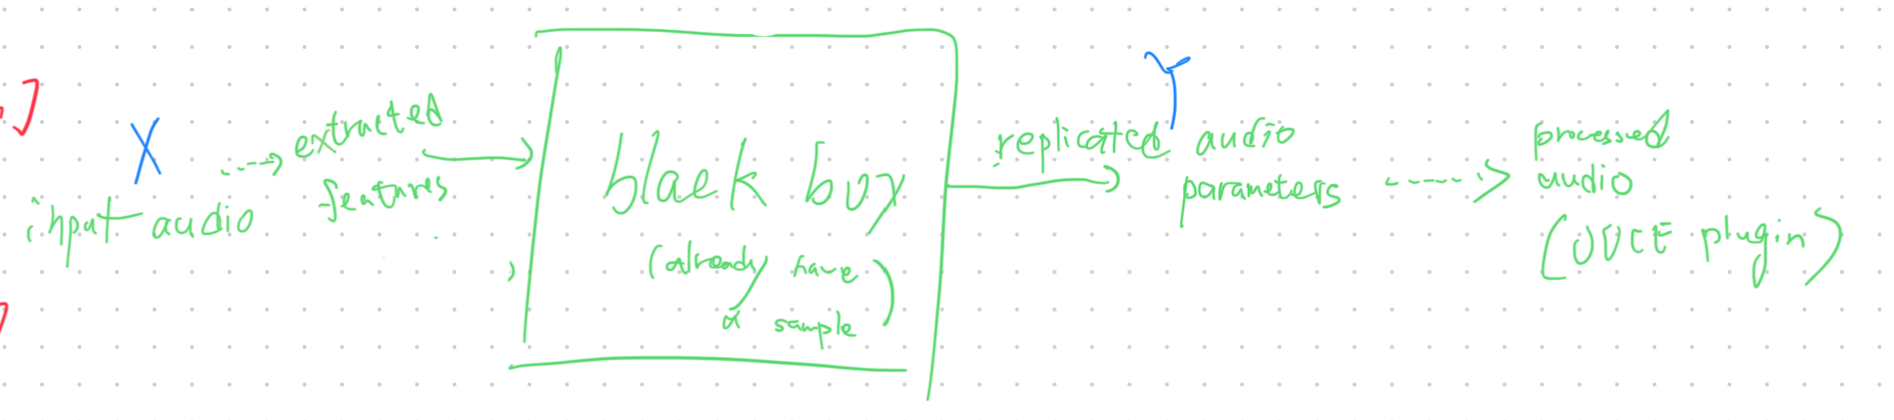 X
input audio
extracted
features
black box
(already have
a sample)
Y
replicated audio
parameters
processed
audio
plugin)